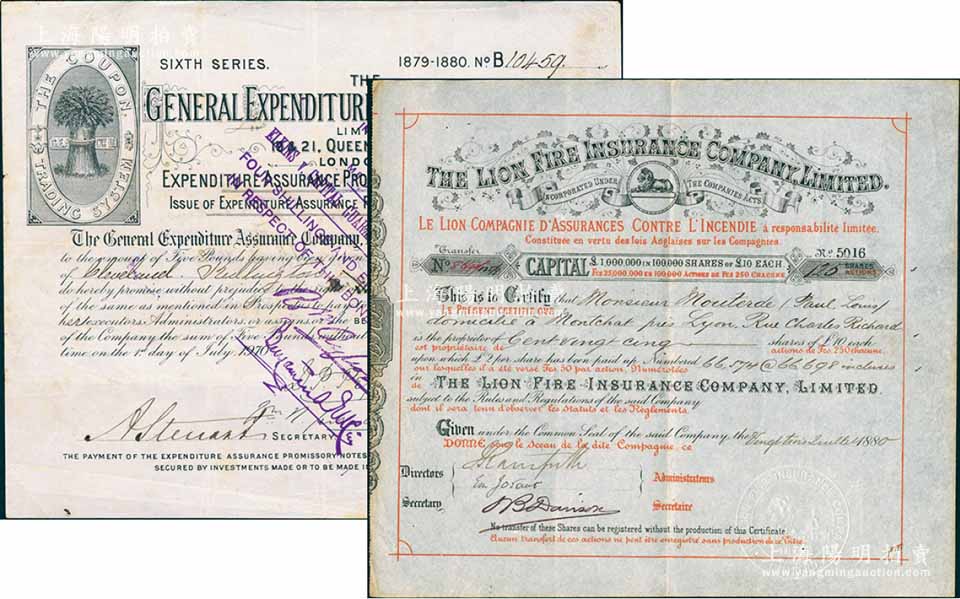 上海陽明拍賣
www.yangmingauction.com
SIXTH SERIES.
1879-1880. No B 10459
THE COUPON
TRADING SYSTEM
THE
GENERAL EXPENDITURE
LIM
19 & 21, QUEEN
LONDO
EXPENDITURE ASSURANCE PRO
ISSUE OF EXPENDITURE ASSURANCE P
FOUR SHILLINGS AND
IN RESPECT OF THIS BOND
The General Expenditure Assurance Company,
to the amount of Five Pounds having been
of Cleveland
do hereby promise without prejudice
of the same as mentioned in Prospectus
her executors, Administrators, or assigns or the BE
of the Company the sum of Five Pounds without
time on the 1st day of July, 1970
A Steuart SECRETARY
THE PAYMENT OF THE EXPENDITURE ASSURANCE PROMISSORY NOTES
SECURED BY INVESTMENTS MADE OR TO BE MADE I
THE LION FIRE INSURANCE COMPANY, LIMITED.
INCORPORATED UNDER THE COMPANIES ACTS
LE LION COMPAGNIE D'ASSURANCES CONTRE L'INCENDIE à responsabilité limitée.
Constituée en vertu des lois Anglaises sur les Compagnies.
Transfer
No
CAPITAL £1,000,000 IN 100,000 SHARES OF £10 EACH
FCS 25,000,000 EN 100,000 ACTIONS DE FCS 250 CHACUNE
No 5016
125 SHARES
ACTIONS
This is to Certify that Monsieur Mouterde (Paul Louis)
LE PRÉSENT CERTIFIE QUE
domicilié à Montchat près Lyon, Rue Charles Richard
is the proprietor of Cent vingt cinq shares of £10 each
est propriétaire de actions de Fcs. 250 chacune
upon which £2 per share has been paid up Numbered 66,574 @ 66,698 inclusive
sur lesquelles il a été versé Fcs 50 par action, Numérotées
in
de THE LION FIRE INSURANCE COMPANY, LIMITED
subject to the Rules and Regulations of the said Company
dont il sera tenu d'observer les Statuts et les Règlements.
Given under the Common Seal of the said Company, the Vingt trois Juillet 1880
DONNÉ sous le Sceau de la dite Compagnie, ce
Directors
Administrateurs
Secretary
Secrétaire
No transfer of these Shares can be registered without the production of this Certificate.
Aucun transfert de ces actions ne peut être enregistré sans production de ce titre.
上海陽明拍賣
www.yangmingauction.com